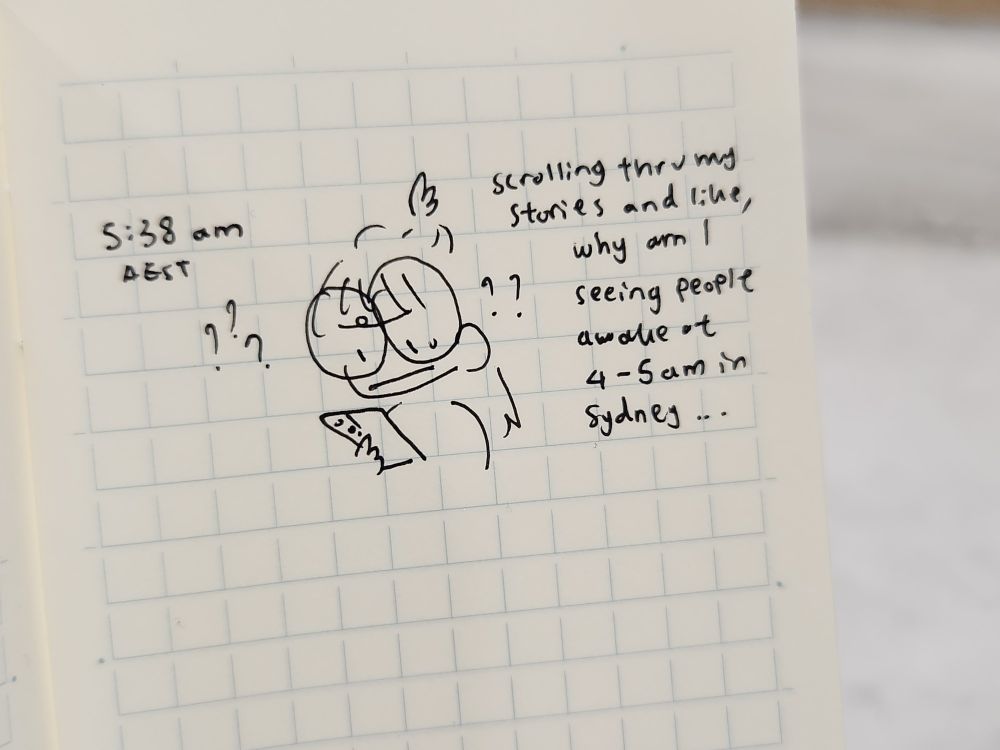 5:38 am
AEST
???
??
scrolling thru my
stories and like,
why am I
seeing people
awake at
4-5am in
Sydney ...